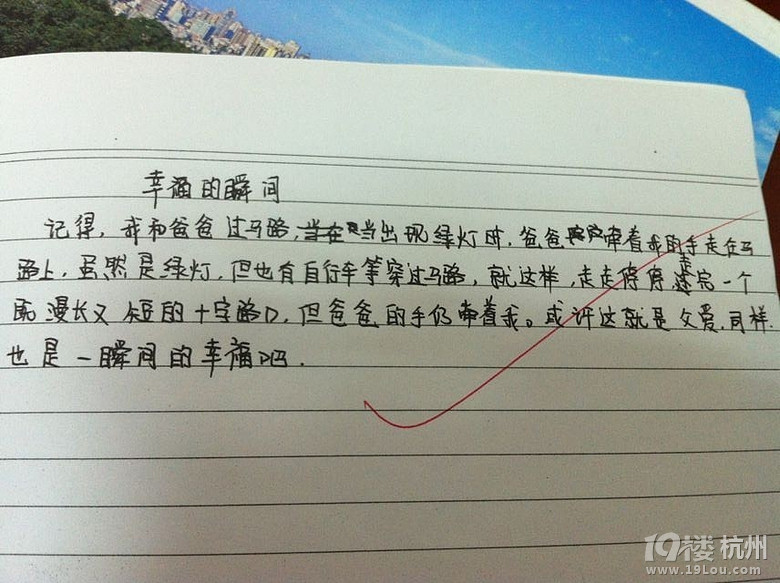 幸福的瞬间
记得,我和爸爸过马路,当出现绿灯时,爸爸牵着我的手走在马
路上,虽然是绿灯,但也有自行车等穿过马路,就这样,走走停停走完一个
既漫长又短的十字路口,但爸爸的手仍牵着我。或许这就是父爱,同样,
也是一瞬间的幸福吧.
19楼 杭州
www.19Lou.com